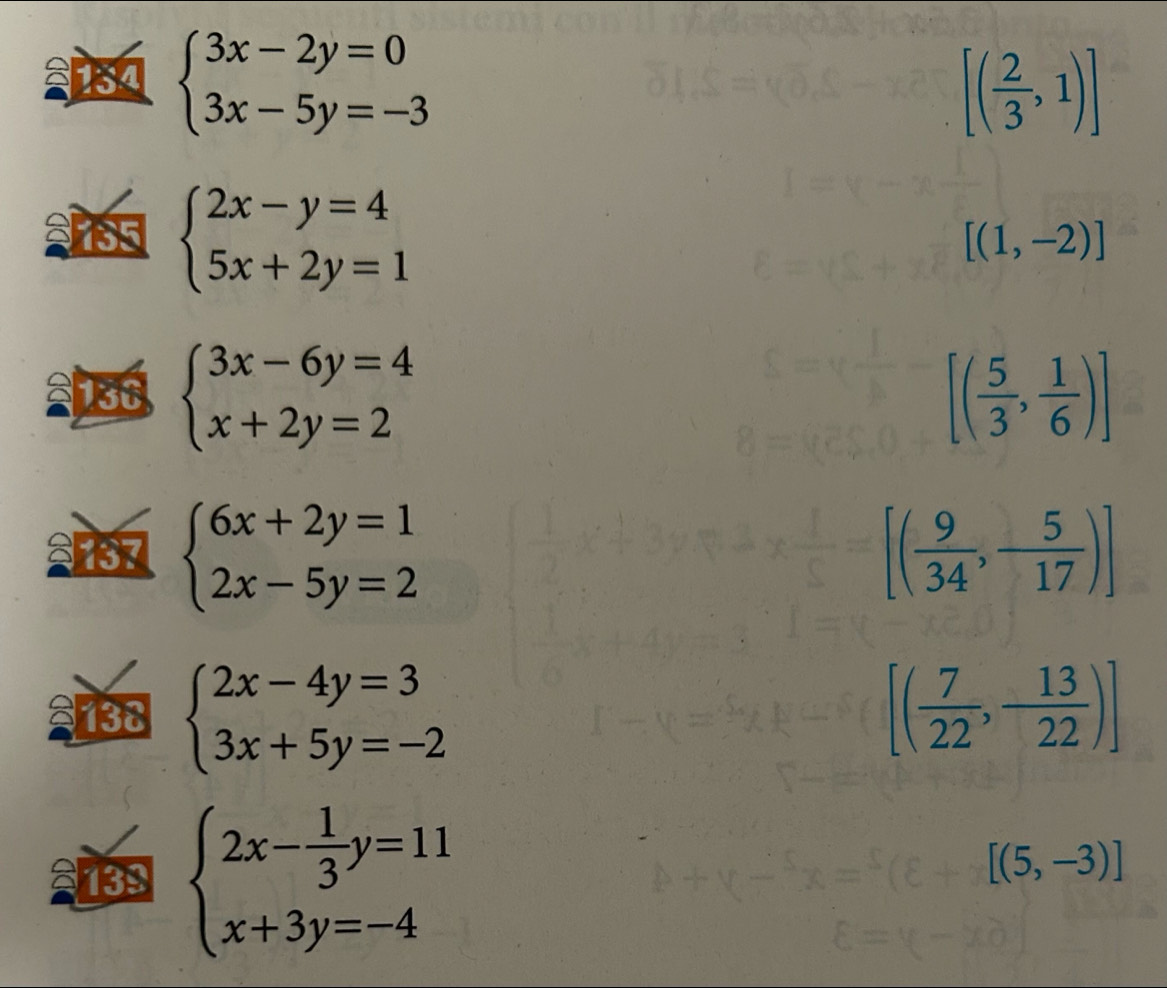 134 {3x − 2y = 0
3x − 5y = −3 [(2/3, 1)]
135 {2x − y = 4
5x + 2y = 1 [(1, −2)]
136 {3x − 6y = 4
x + 2y = 2 [(5/3, 1/6)]
137 {6x + 2y = 1
2x − 5y = 2 [(9/34, −5/17)]
138 {2x − 4y = 3
3x + 5y = −2 [(7/22, −13/22)]
139 {2x − 1/3 y = 11
x + 3y = −4 [(5, −3)]